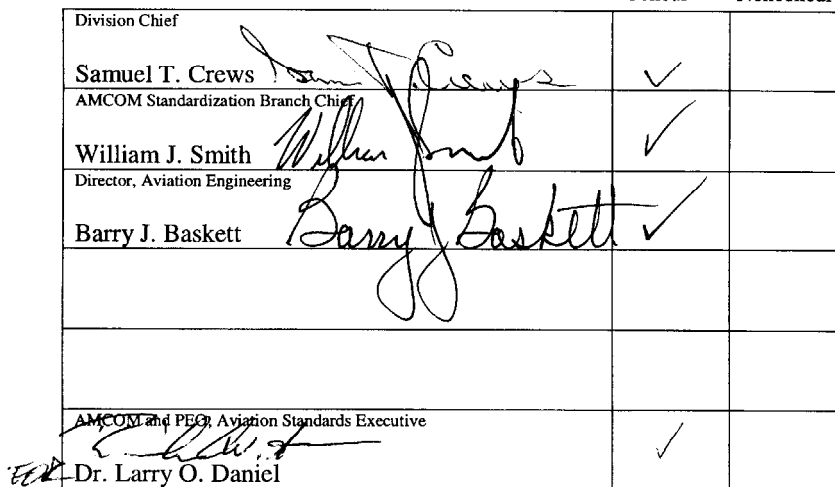 Division Chief
Samuel T. Crews Sam T Crews ✓
AMCOM Standardization Branch Chief
William J. Smith William J Smith ✓
Director, Aviation Engineering
Barry J. Baskett Barry J Baskett ✓
AMCOM and PEO, Aviation Standards Executive
FOR Dr. Larry O. Daniel ✓